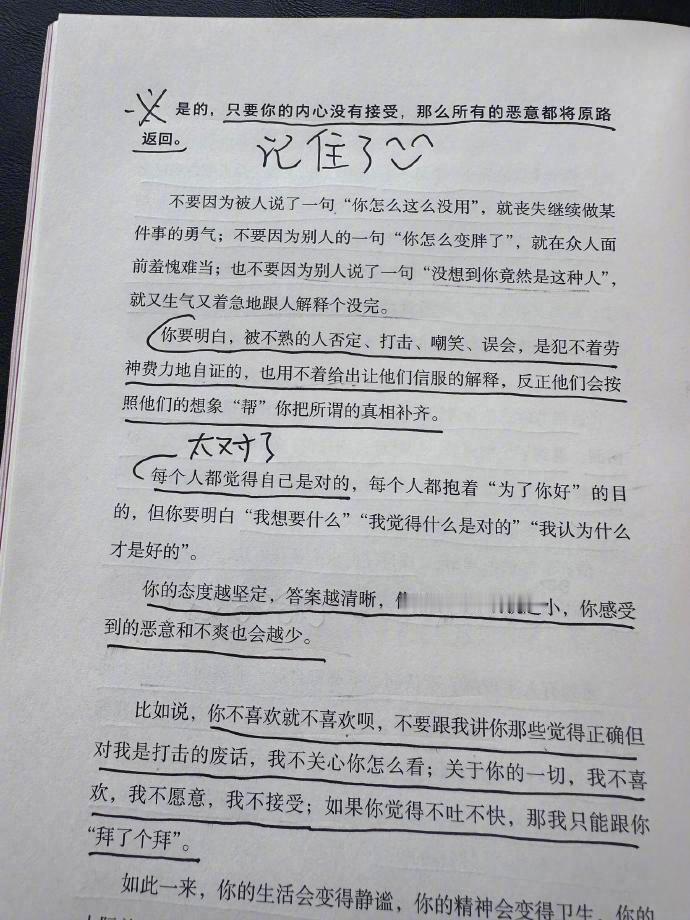 是的，只要你的内心没有接受，那么所有的恶意都将原路
返回。
记住了
不要因为被人说了一句“你怎么这么没用”，就丧失继续做某
件事的勇气；不要因为别人的一句“你怎么变胖了”，就在众人面
前羞愧难当；也不要因为别人说了一句“没想到你竟然是这种人”，
就又生气又着急地跟人解释个没完。
你要明白，被不熟的人否定、打击、嘲笑、误会，是犯不着劳
神费力地自证的，也用不着给出让他们信服的解释，反正他们会按
照他们的想象“帮”你把所谓的真相补齐。
太对了
每个人都觉得自己是对的，每个人都抱着“为了你好”的目
的，但你要明白“我想要什么”“我觉得什么是对的”“我认为什么
才是好的”。
你的态度越坚定，答案越清晰，小，你感受
到的恶意和不爽也会越少。
比如说，你不喜欢就不喜欢呗，不要跟我讲你那些觉得正确但
对我是打击的废话，我不关心你怎么看；关于你的一切，我不喜
欢，我不愿意，我不接受；如果你觉得不吐不快，那我只能跟你
“拜了个拜”。
如此一来，你的生活会变得静谧，你的精神会变得卫生，你的